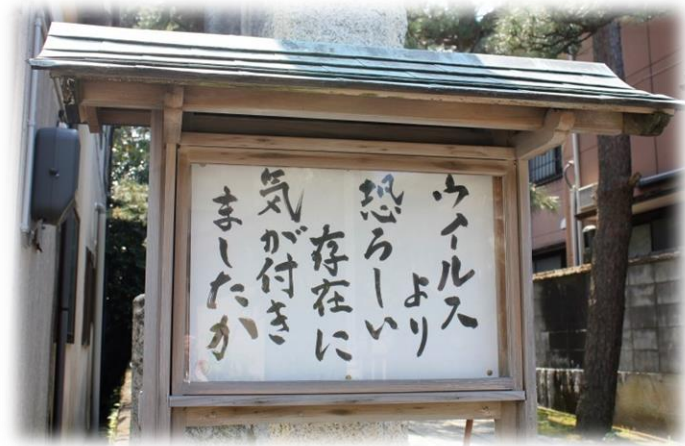 ウイルス
より
恐ろしい
存在に
気が付き
ましたか